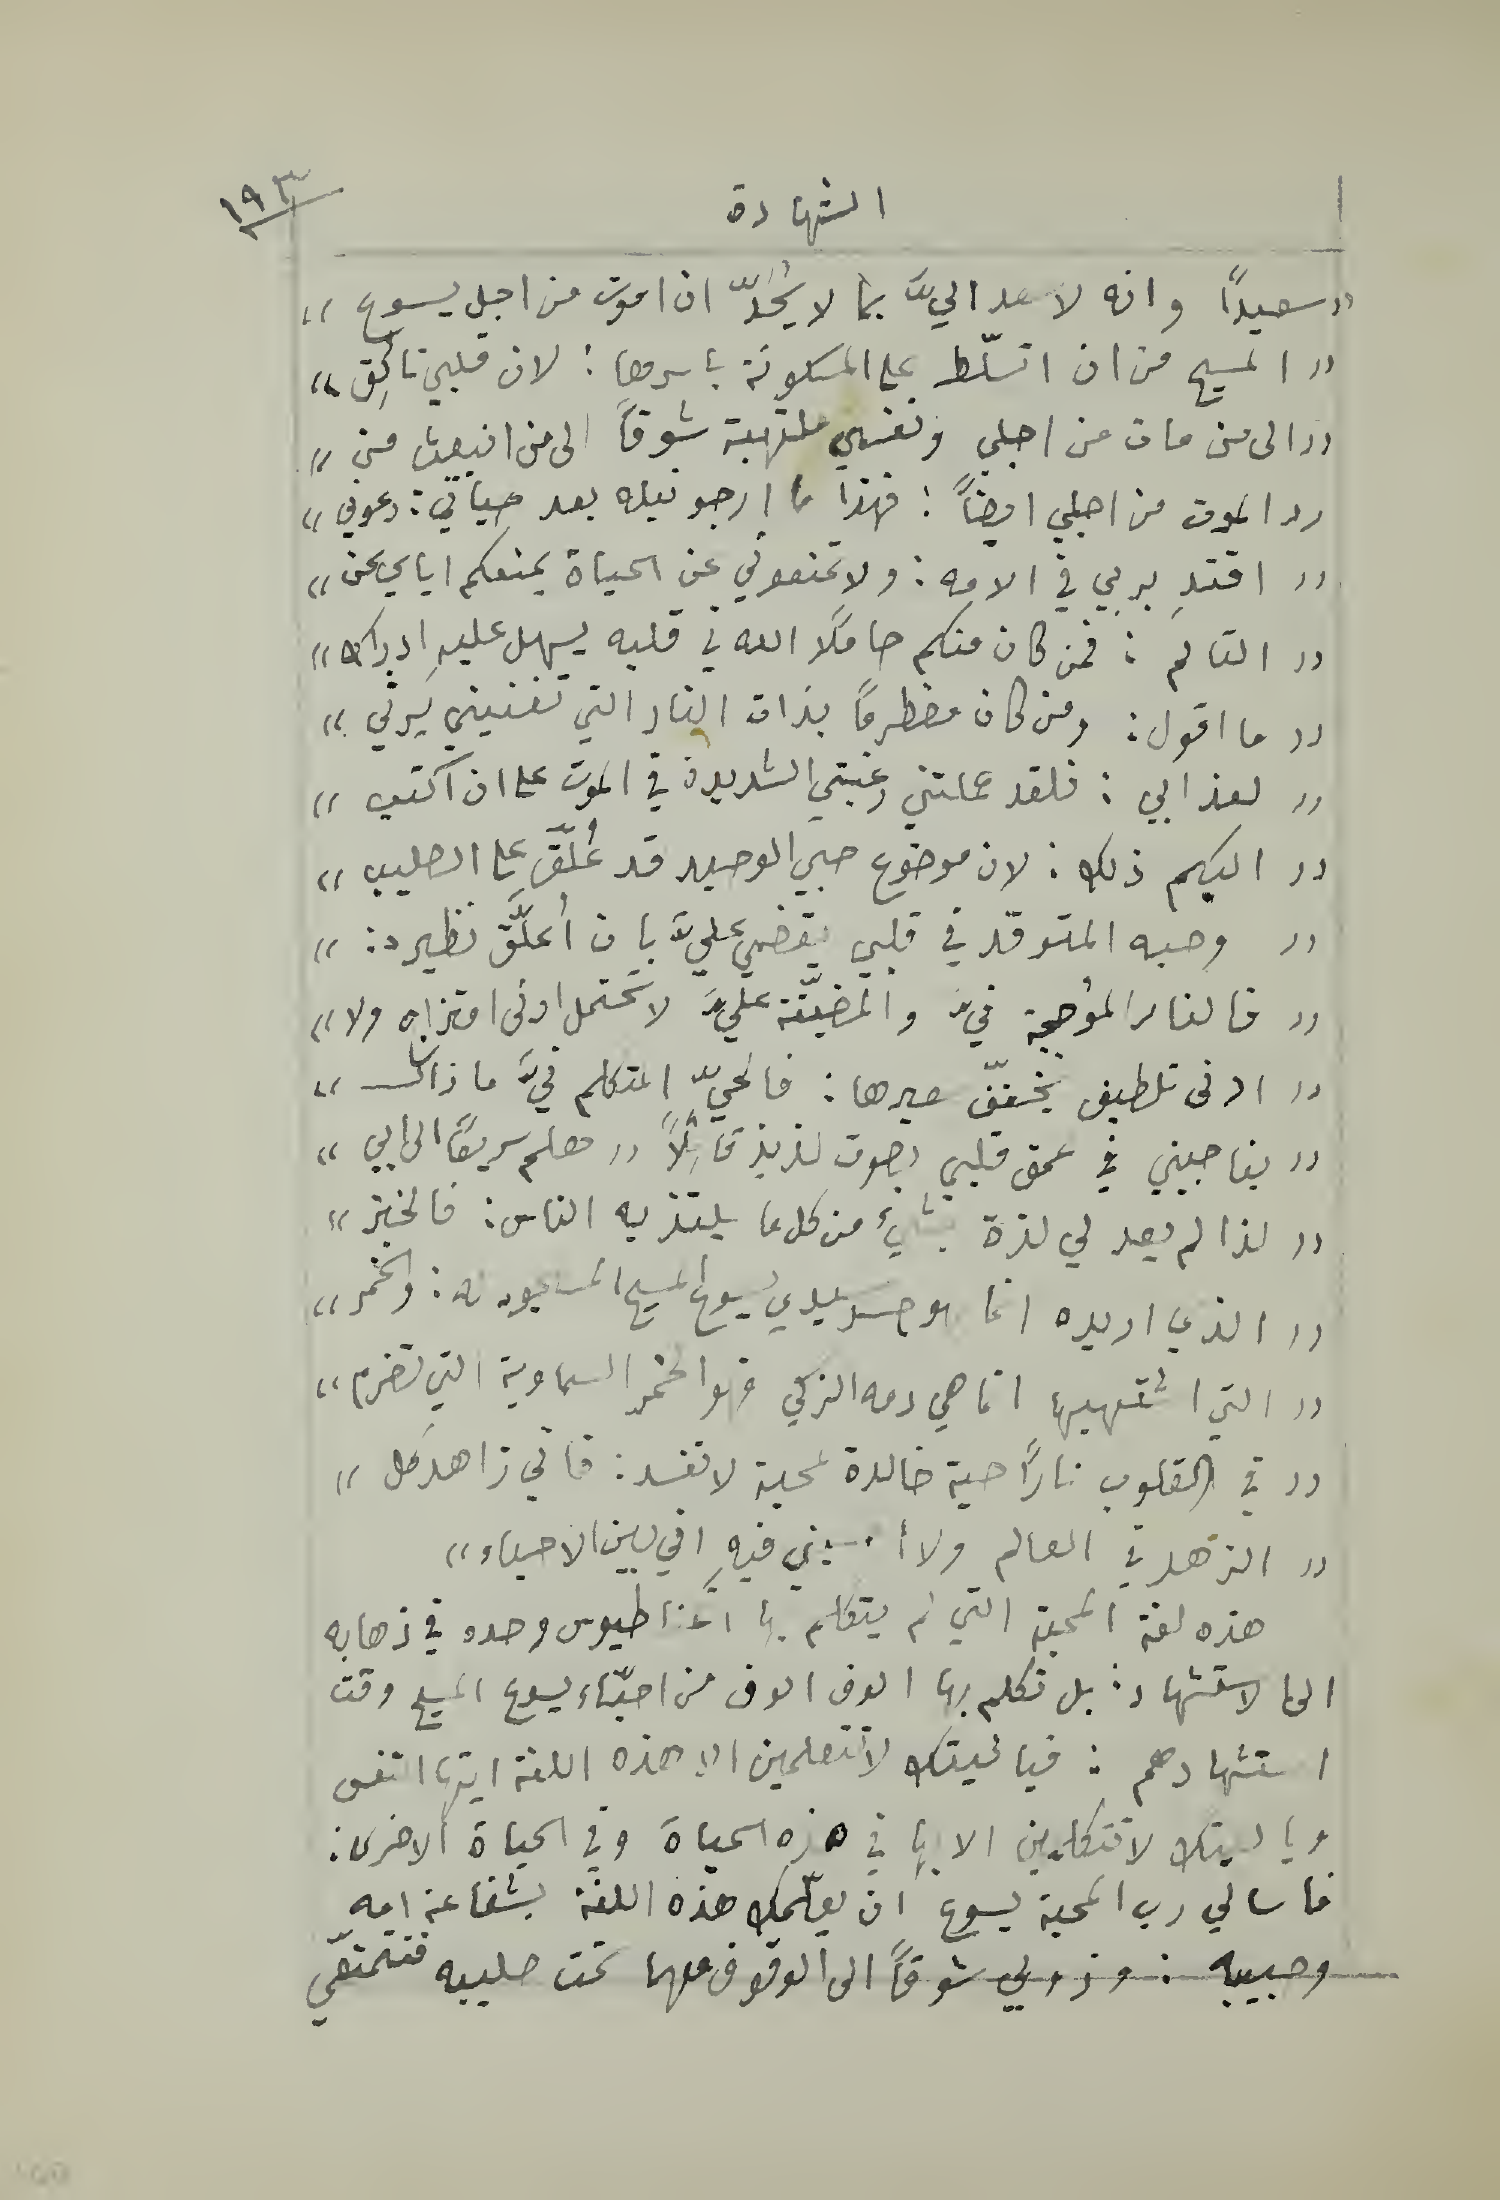 ١٩٣
الشهادة
«سعيداً وانه لاسعد اليَّ بما لا يُحَدّ ان اموت من اجل يسوع»
«المسيح من ان اتسلّط على المسكونة باسرها: لان قلبي تائق»
«الى من مات من اجلي ونفسي ملتهبة شوقاً الى من انبعث من»
«الموت من اجلي ايضاً: فهذا ما ارجو نيله بعد حياتي: دعوني»
«اقتدِ بربي في الامه: ولا تمنعوني عن الحياة بمنعكم اياي عن»
«التالم: فمن كان منكم حاملًا الله في قلبه يسهل عليهِ ادراك»
«ما اقول: ومن كان مضطرماً بذات النار التي تفنيني يرثي»
«لعذابي: فلقد حملتني رغبتي الشديدة في الموت على ان اكتب»
«اليكم ذلك: لان موضوع حبي الوحيد قد عُلِّق على الصليب»
«وحبه المتوقد في قلبي يقضي عليَّ بان أُعلَّق نظيره:»
«فالنار المؤججة فيَّ والمضيّقة عليَّ لا تحتمل ادنى امتزاج ولا»
«ادنى تلطيف يخفّف حرها: فالحيّ المتكلم فيَّ ما زال»
«يناجيني في عمق قلبي بصوت لذيذ قائلًا «هلم سريعًا الى ابي»
«لذا لم يعد لي لذة بشيء من كل ما يلتذ به الناس: فالخبز»
«الذي اريده انما هو جسد سيدي يسوع المسيح المعبود له: والخمر»
«التي اشتهيها انما هي دمه الزكي فهو الخمر السماوية التي تضرم»
«في القلوب ناراً حية خالدة لمحبة لا تفسد: فاني زاهد كل»
«الزهد في العالم ولا فيهِ اني بين الاحياء»
هذه لغة المحبة التي لم يتكلم بها اغناطيوس وحده في ذهابه
الى الاستشهاد: بل تكلم بها الوف الوف من احبّاء يسوع المسيح وقت
استشهادهم: فيا ليتك لا تتعلمين الا هذه اللغة ايتها النفس
ويا ليتك لا تتكلمين الا بها في هذه الحياة وفي الحياة الاخرى:
فاسالي رب المحبة يسوع ان يعلّمك هذه اللغة بشفاعة امه
وحبيبه: وذوبي شوقاً الى الوقوف معهما تحت صليبه فتتمتعي